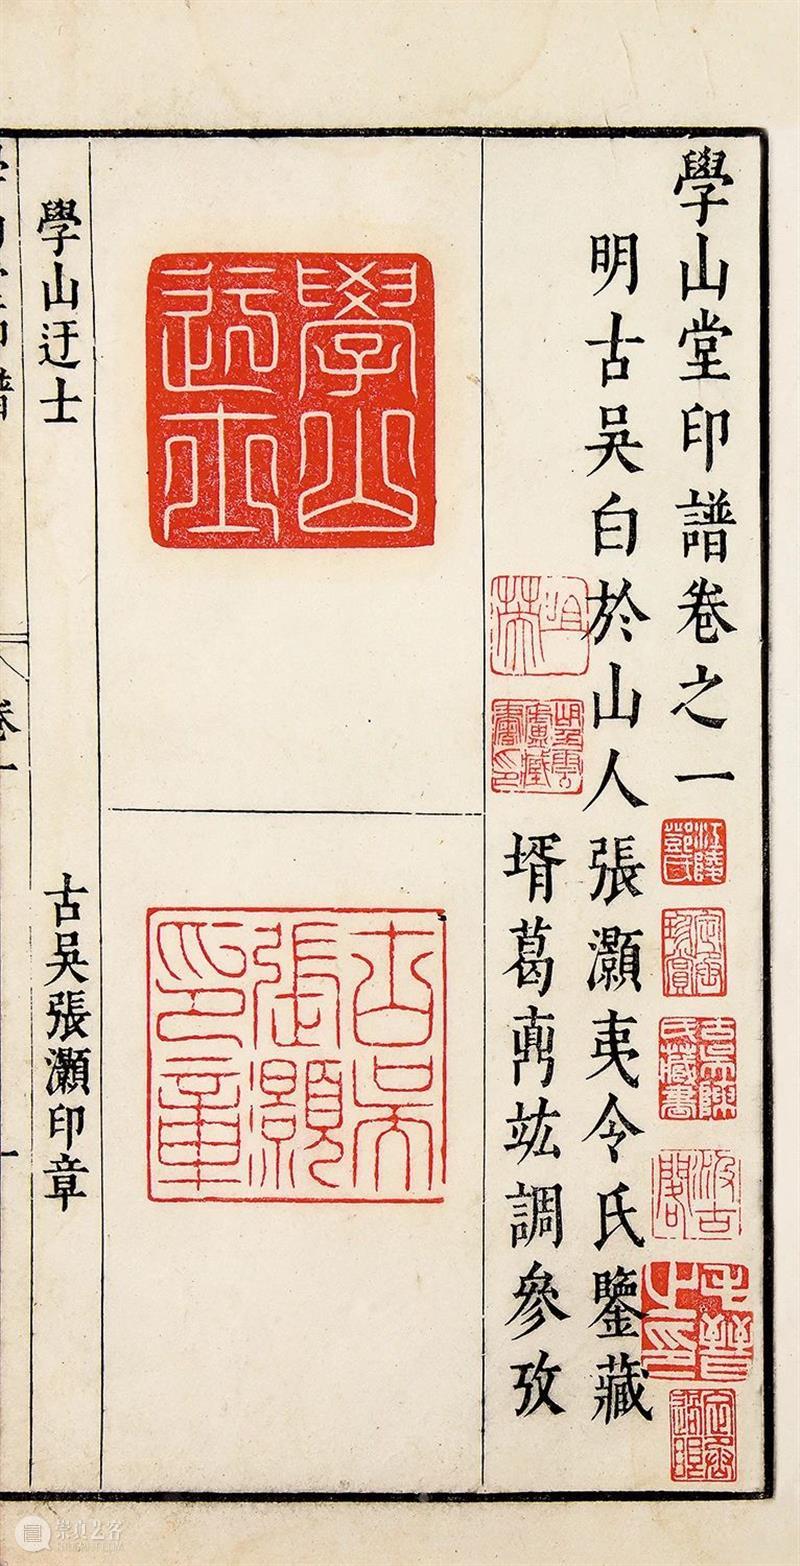 學山堂印譜卷之一
江陵鄧氏
汲古閣
明古吳白於山人張灝夷令氏鑒藏
壻葛竑調參攷
學山迂士
古吳張灝印章
學山迂士
古吳張灝印章
學山堂印譜
卷一
一
崇真艺客